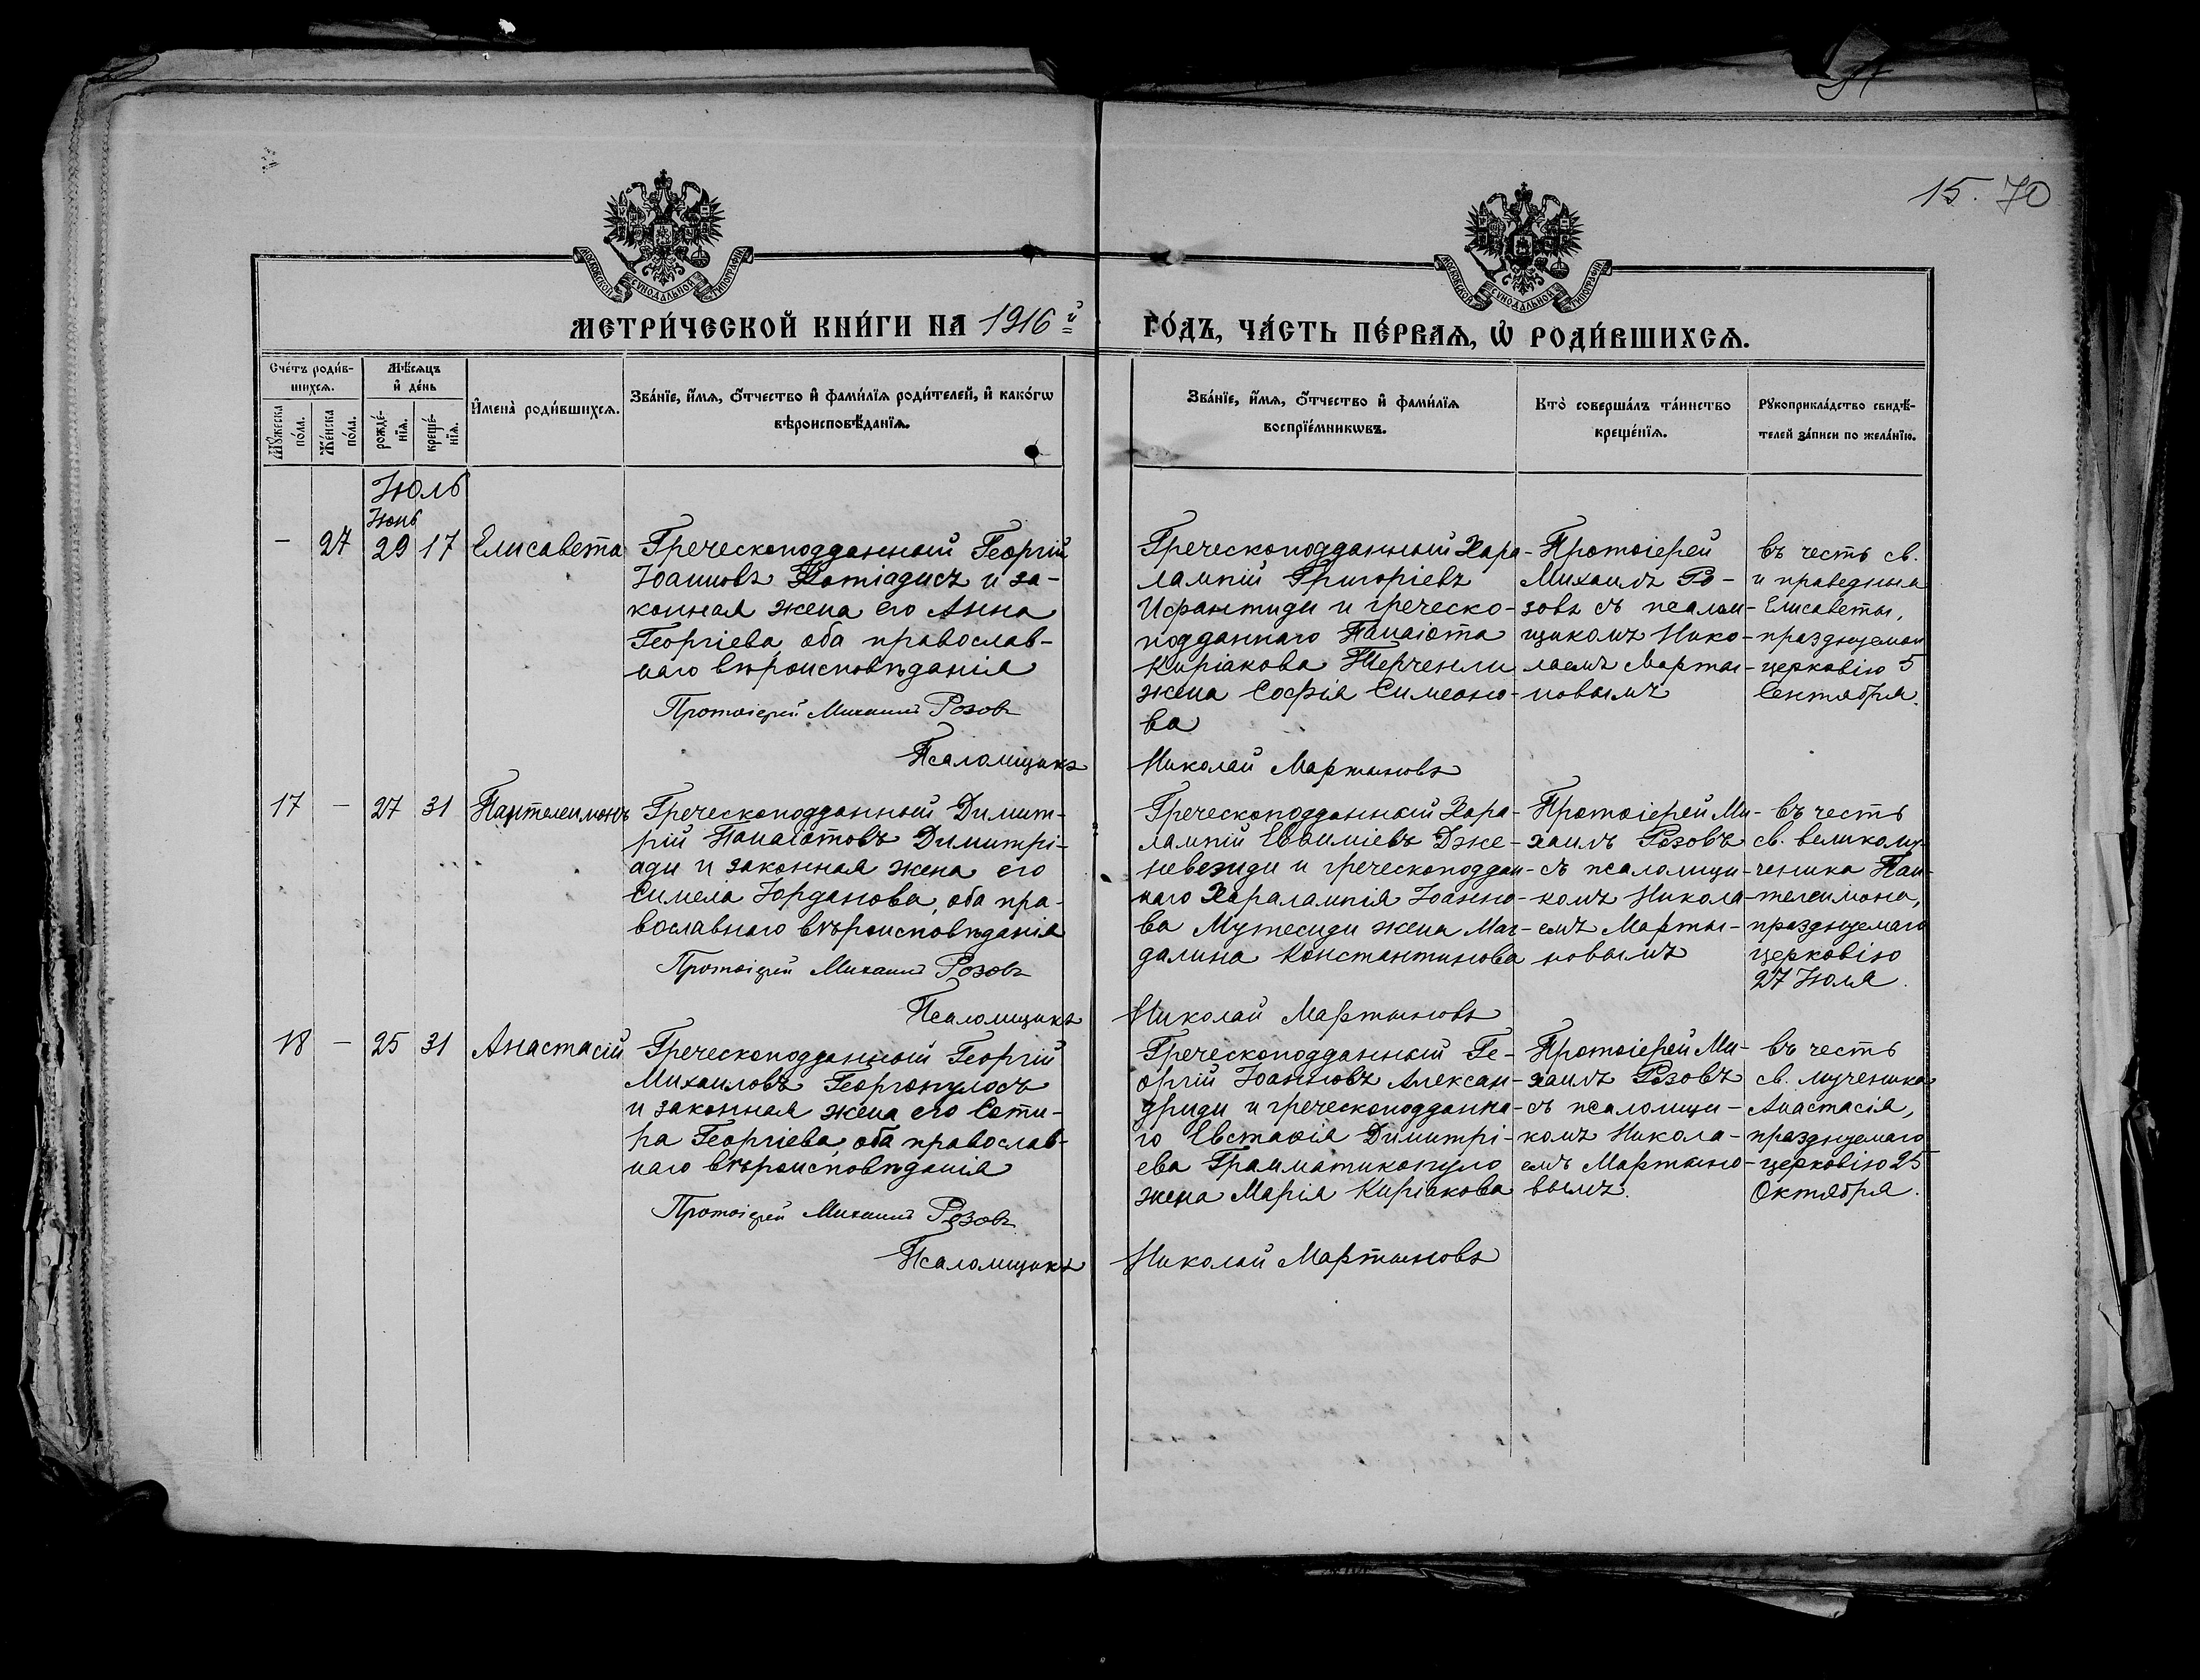 15. 70
МОСКОВСКОЙ СѴНОДАЛЬНОЙ ТИПОГРАФІИ
МОСКОВСКОЙ СѴНОДАЛЬНОЙ ТИПОГРАФІИ
МЕТРИ́ЧЕСКОЙ КНИ́ГИ НА 1916й
ГО́ДЪ, ЧА́СТЬ ПЕ́РВАѦ, Ѡ РОДИ́ВШИХСѦ.
Сче́тъ роди́в-
шихсѧ.
Мѣ́сѧцъ
и҆ де́нь
Мꙋ́жеска
по́ла.
Же́нска
по́ла.
рожде́-
нїѧ.
креще́-
нїѧ.
И҆мена̀ роди́вшихсѧ.
Зва́нїе, и҆́мѧ, ѻ҆́тчество и҆ фамѝлїѧ роди́телей, и҆ како́гѡ
вѣроисповѣ́данїѧ.
Зва́нїе, и҆́мѧ, ѻ҆́тчество и҆ фамѝлїѧ
воспрїе́мникѡвъ.
Кто̀ соверша́лъ та́инство
креще́нїѧ.
Рꙋкоприкла́дство свидѣ́-
телей за́писи по жела́нїю.
Июль
Июнь
- 27 29 17 Елисавета
Греческоподданный Георгій
Іоанновъ Котіадисъ и за-
конная жена его Анна
Георгіева, оба православ-
наго вѣроисповѣданія
Протоіерей Михаилъ Розовъ
Псаломщикъ
Греческоподданный Хара-
лампій Григоріевъ
Ифантиди и греческо-
подданнаго Панаіота
Киріакова Терченли
жена Софія Симеоно-
ва
Николай Мартыновъ
Протоіерей
Михаилъ Ро-
зовъ съ псалом-
щикомъ Нико-
лаемъ Марты-
новымъ
въ честь св.
и праведныя
Елисаветы,
празднуемой
церковію 5
Сентября.
17 - 27 31 Пантелеимонъ
Греческоподданный Димит-
рій Панаіотовъ Димитрі-
ади и законная жена его
Симела Іорданова, оба пра-
вославнаго вѣроисповѣданія
Протоіерей Михаилъ Розовъ
Псаломщикъ
Греческоподданный Хара-
лампій Евѳиміевъ Дже-
невезиди и греческоподдан-
наго Харалампія Іоанно-
ва Мутесиди жена Маг-
далина Константинова
Николай Мартыновъ
Протоіерей Ми-
хаилъ Розовъ
съ псаломщи-
комъ Никола-
емъ Марты-
новымъ
въ честь
св. великому-
ченика Пан-
телеимона,
празднуемаго
церковію
27 Июля.
18 - 25 31 Анастасій
Греческоподданный Георгій
Михаиловъ Георгопулосъ
и законная жена его Соти-
ра Георгіева, оба православ-
наго вѣроисповѣданія
Протоіерей Михаилъ Розовъ
Псаломщикъ
Греческоподданный Ге-
оргій Іоанновъ Алексан-
дриди и греческоподданна-
го Евстаѳія Димитрі-
ева Грамматикопуло
жена Марія Киріакова
Николай Мартыновъ
Протоіерей Ми-
хаилъ Розовъ
съ псаломщи-
комъ Никола-
емъ Мартыно-
вымъ.
въ честь
св. мученика
Анастасія,
празднуемаго
церковію 25
Октября.